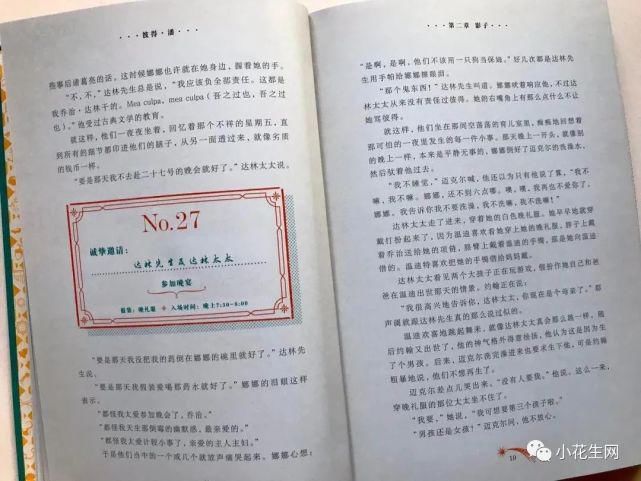 彼得·潘
些事后诸葛亮的话。这时候娜娜也许就在她身边，握着她的手。
“不，不，”达林先生总是说，“我应该负全部责任。这都是
我乔治·达林干的。Mea culpa, mea culpa（吾之过也，吾之过
也）。”他受过古典文学的教育。
就这样，他们一夜夜坐着，回忆着那个不祥的星期五，直
到所有的细节都印进他们的脑子，从另一面透过来，就像劣质
的钱币一样。
“要是那天我不去赴二十七号的晚宴就好了。”达林太太说。
No.27
诚挚邀请：
达林先生及达林太太
参加晚宴
着装：晚礼服 入场时间：晚上7:30-8:00
“要是那天我没把我的药倒在娜娜的碗里就好了。”达林先
生说。
“要是那天我假装爱喝那药水就好了。”娜娜的泪眼这样
表示。
“都怪我太爱参加晚会了，乔治。”
“都怪我天生那倒霉的幽默感，最亲爱的。”
“都怪我太爱计较小事了，亲爱的主人主妇。”
于是他们当中的一个或几个就放声痛哭起来。娜娜心想：
第二章 影子
“是啊，是啊，他们不该用一只狗当保姆。”好几次都是达林先
生用手帕给娜娜擦眼泪。
“那个鬼东西！”达林先生叫道。娜娜吠着响应他，不过达
林太太从来没有责怪过彼得。她的右嘴角上有那么点什么不让
她骂彼得。
就这样，他们坐在那间空荡荡的育儿室里，痴痴地回想着
那可怕的一夜里发生的每一件小事。那天晚上一开头，就像别
的晚上一样，本来是平静无事的，娜娜倒好了迈克尔的洗澡水，
然后驮着他过去。
“我不睡觉，”迈克尔喊，他还以为只有他说了算，“我不
嘛，我不嘛。娜娜，还不到六点嘛。噢，噢，我再也不爱你了，
娜娜。我告诉你我不要洗澡，我不洗嘛，我不洗嘛！”
达林太太走了进来，穿着她的白色晚礼服。她早早地就穿
戴打扮起来了，因为温迪喜欢看她穿上她的晚礼服，脖子上戴
着乔治送给她的项链，胳臂上戴着温迪的手镯，那是她向温迪
借的。温迪特喜欢把她的手镯借给妈妈戴。
达林太太看见两个大孩子正在玩游戏，假扮作她自己和爸
爸在温迪出世那天的情景。约翰正在说：
“我很高兴地告诉你，达林太太，你现在是个母亲了。”那
声调就跟达林先生真的那么说过似的。
温迪欢喜地跳起舞来，就像达林太太真会那么跳一样。随
后约翰又出世了，他的神气格外得意扬扬，他认为这是因为生
了个男孩。后来，迈克尔洗完澡进来也要求生下他，可是约翰
粗暴地说，他们不想再生了。
迈克尔差点儿哭出来。“没有人要我。”他说。这么一来，
穿晚礼服的那位太太坐不住了。
“我要，”她说，“我可想要第三个孩子啦。”
“男孩还是女孩？”迈克尔问，他不放心。
19
小花生网